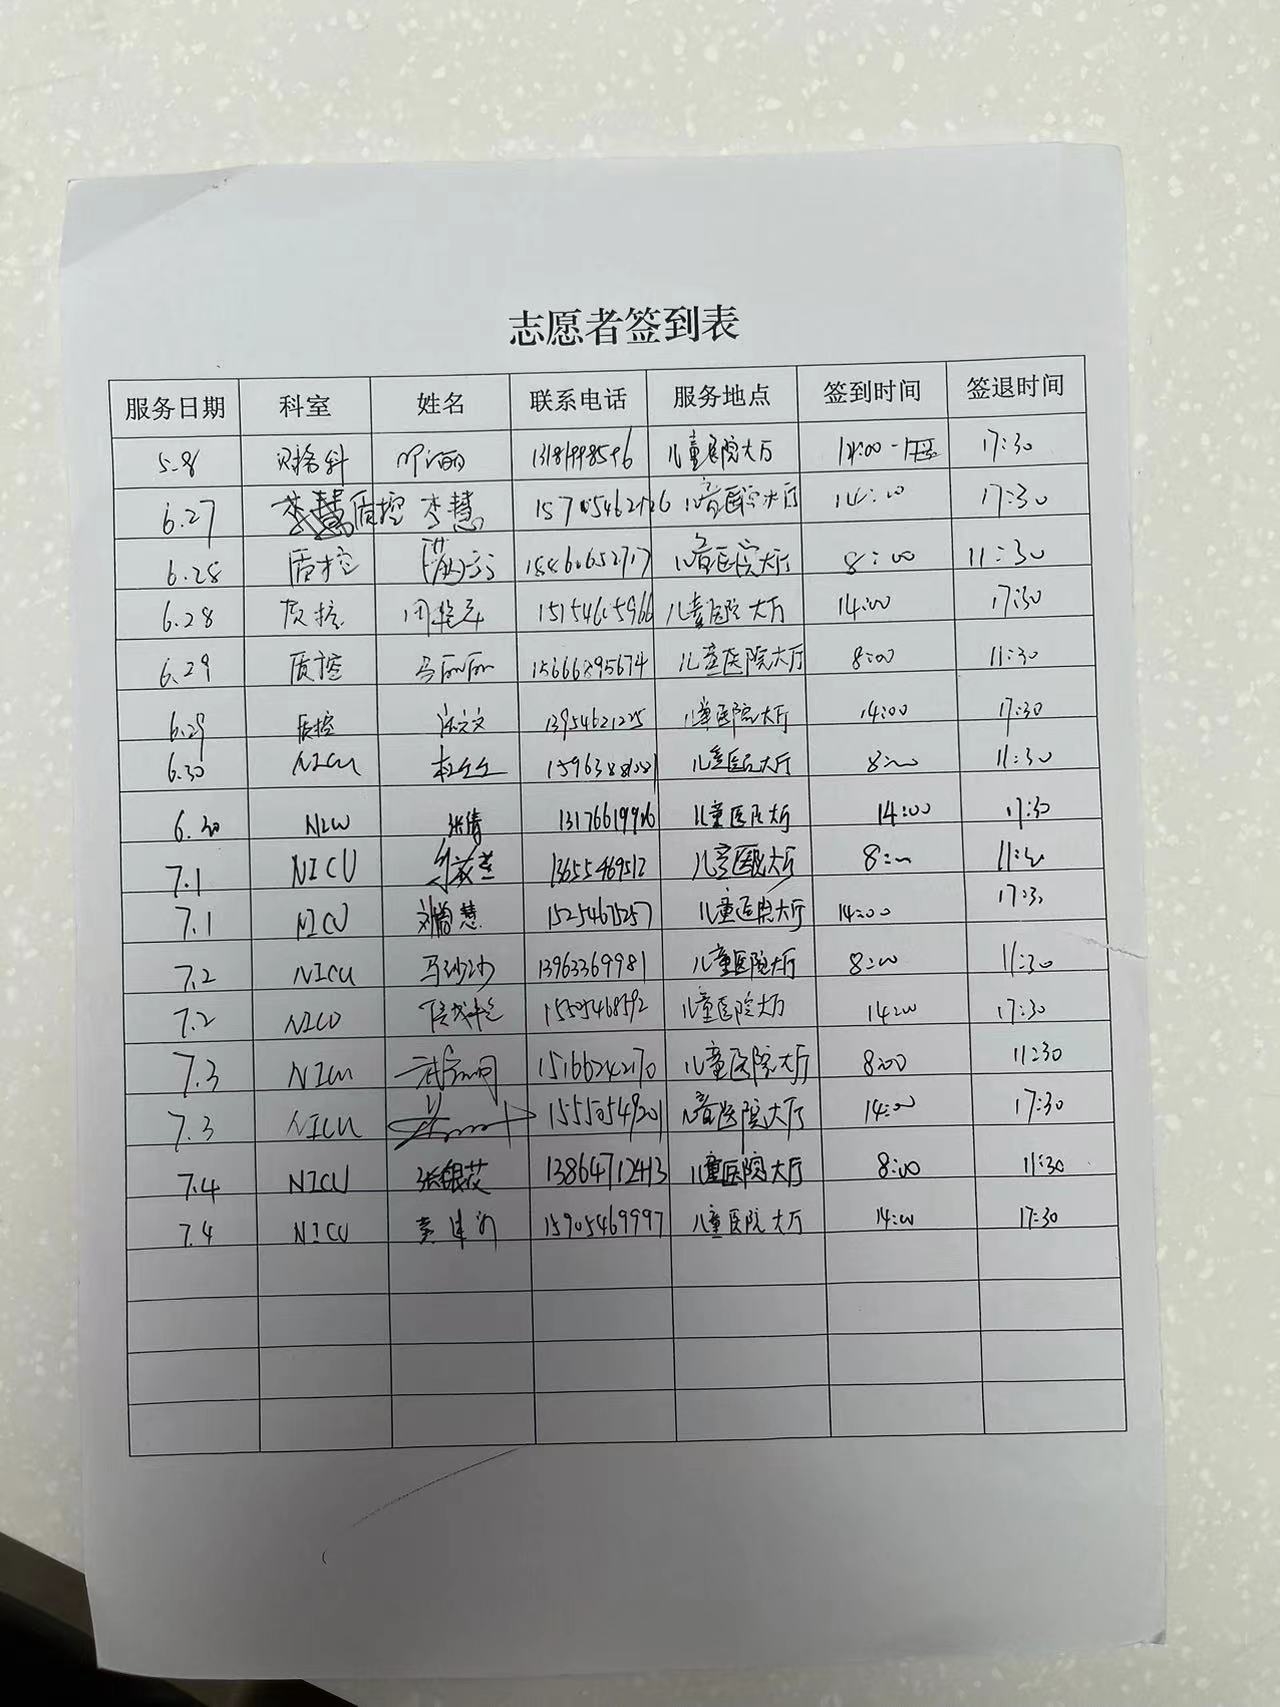 志愿者签到表
服务日期 科室 姓名 联系电话 服务地点 签到时间 签退时间
5.8 财务科 儿童医院大厅 14:00 17:30
6.27 质控 李慧 儿童医院大厅 14:00 17:30
6.28 质控 儿童医院大厅 8:00 11:30
6.28 质控 儿童医院大厅 14:00 17:30
6.29 质控 马丽丽 15666295674 儿童医院大厅 8:00 11:30
6.29 质控 13954621225 儿童医院大厅 14:00 17:30
6.30 NICU 儿童医院大厅 8:00 11:30
6.30 NICU 张倩 13176619926 儿童医院大厅 14:00 17:30
7.1 NICU 13655469512 儿童医院大厅 8:00 11:30
7.1 NICU 15254675257 儿童医院大厅 14:00 17:30
7.2 NICU 马沙沙 13963369981 儿童医院大厅 8:00 11:30
7.2 NICU 儿童医院大厅 14:00 17:30
7.3 NICU 15166242170 儿童医院大厅 8:00 11:30
7.3 NICU 儿童医院大厅 14:00 17:30
7.4 NICU 张银花 13864712413 儿童医院大厅 8:00 11:30
7.4 NICU 15905469997 儿童医院大厅 14:00 17:30